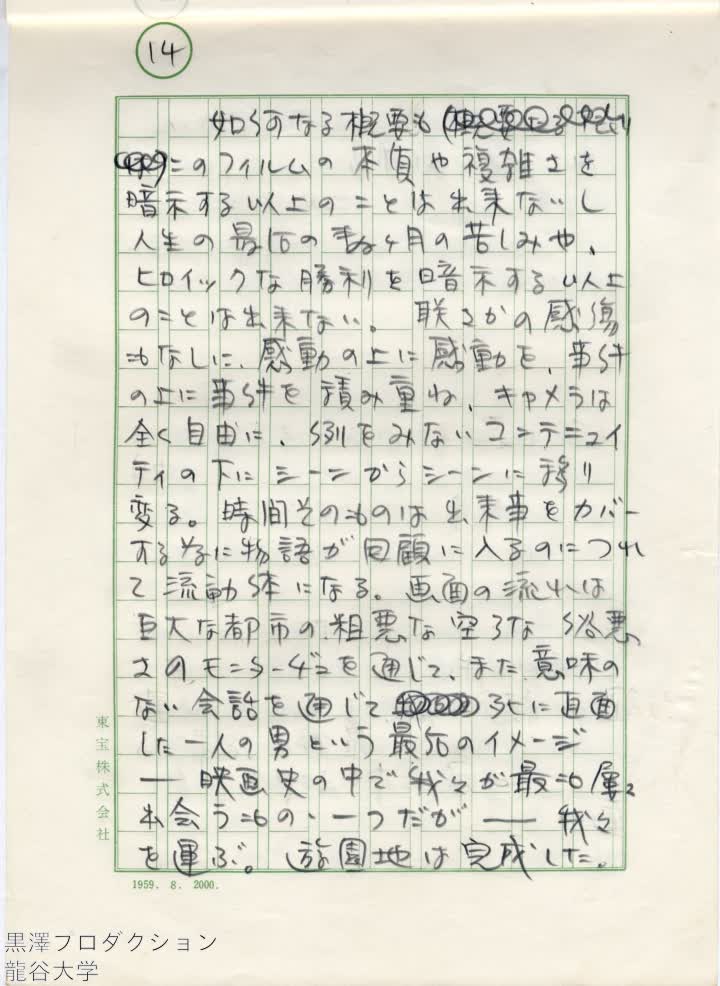 14
如何なる概要も
このフィルムの本質や複雑さを
暗示する以上のことは出来ないし
人生の最后の数ヶ月の苦しみや、
ヒロイックな勝利を暗示する以上
のことは出来ない。聯さかの感傷
もなしに、感動の上に感動を、事件
の上に事件を積み重ね、キャメラは
全く自由に、例をみないコンテニュイ
ティの下にシーンからシーンに移り
変る。時間そのものは出来事をカバー
する為に物語が回顧に入るのにつれ
て流動体になる。画面の流れは
巨大な都市の粗悪な空ろな俗悪
さのモンタージュを通じて、また意味の
ない会話を通じて死に直面
した一人の男という最后のイメージ
── 映画史の中で我々が最も屡々
出会うもの、一つだが ── 我々
を運ぶ。遊園地は完成した。
東宝株式会社
1959. 8. 2000.
黒澤プロダクション
龍谷大学